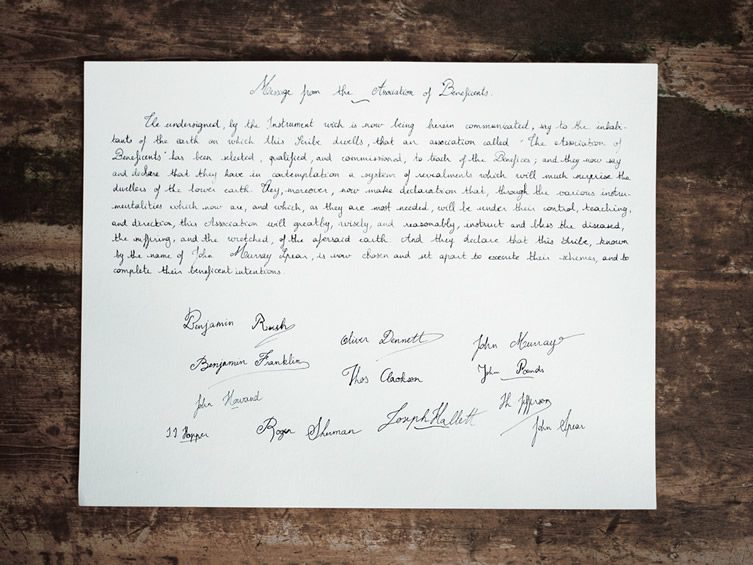 Message from the Association of Beneficents.
The undersigned, by the Instrument wich is now being herein communicated, say to the inhabi-
tants of the earth on which this Scribe dwells, that an association called "The Association of
Beneficents" has been selected, qualified, and commissioned, to teach of the Benefices; and they now say
and declare that they have in contemplation a system of revealments which will much surprise the
dwellers of the lower earth. They, moreover, now make declaration that, through the various instru-
mentalities which now are, and which, as they are most needed, will be under their control, teaching,
and direction, this Association will greatly, wisely, and reasonably, instruct and bless the diseased,
the suffering, and the wretched, of the aforsaid earth. And they declare that this Scribe, known
by the name of John Murray Spear, is now chosen and set apart to execute their schemes, and to
complete their beneficent intentions.
Benjamin Rush Oliver Dennett John Murray
Benjamin Franklin Thos Clarkson John Pounds
John Howard Th Jefferson
I.T. Hopper Roger Sherman Joseph Hallett John Spear